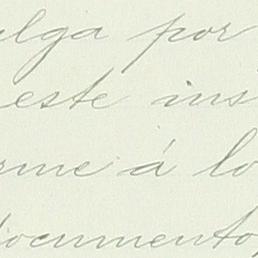 ulga por
este ins
rme á lo
documento,